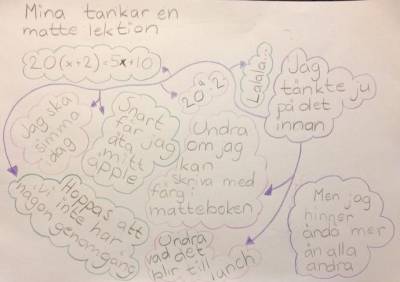 Mina tankar en
matte lektion
20(x+2)=5x+10
20 · 2
Lalala..
Jag
tänkte ju
på det
innan
Jag ska
simma
i dag
Snart
får jag
äta
mitt
äpple
Undra
om jag
kan
skriva med
färg i
matteboken
Hoppas att
vi inte har
någon genomgång
Undra
vad det
blir till
lunch
Men jag
hinner
ändå mer
än alla
andra